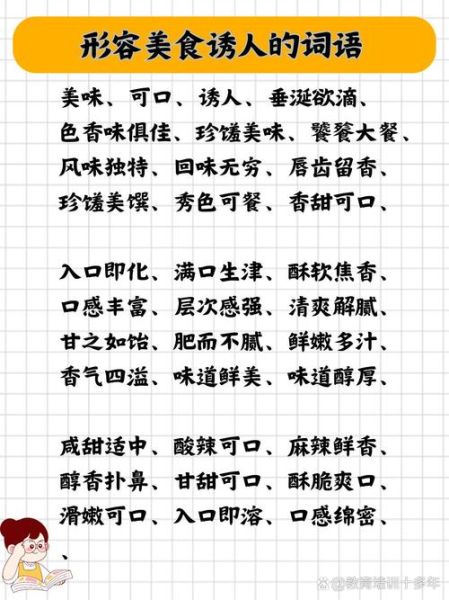 形容美食诱人的词语
美味、可口、诱人、垂涎欲滴、
色香味俱佳、珍馐美味、饕餮大餐、
风味独特、回味无穷、唇齿留香、
珍馐美馔、秀色可餐、香甜可口、
入口即化、满口生津、酥软焦香、
口感丰富、层次感强、清爽解腻、
甘之如饴、肥而不腻、鲜嫩多汁、
香气四溢、味道鲜美、味道醇厚、
咸甜适中、酸辣可口、麻辣鲜香、
醇香扑鼻、甘甜可口、酥脆爽口、
滑嫩可口、入口即溶、口感绵密、
、
@教育培训十多年